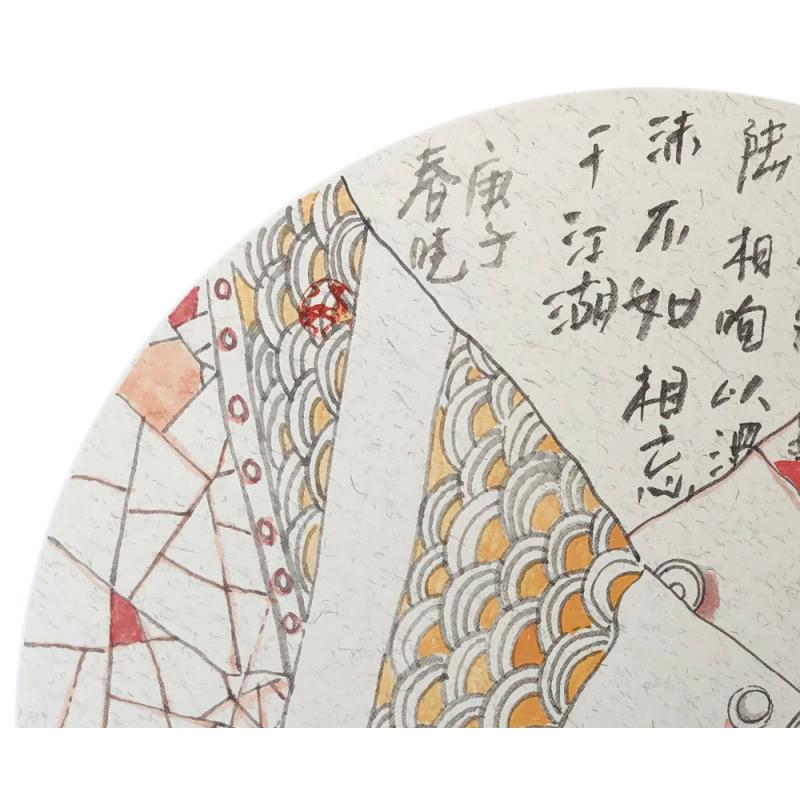 陆相呴以湿
沫不如相忘
于江湖
庚子
春晓